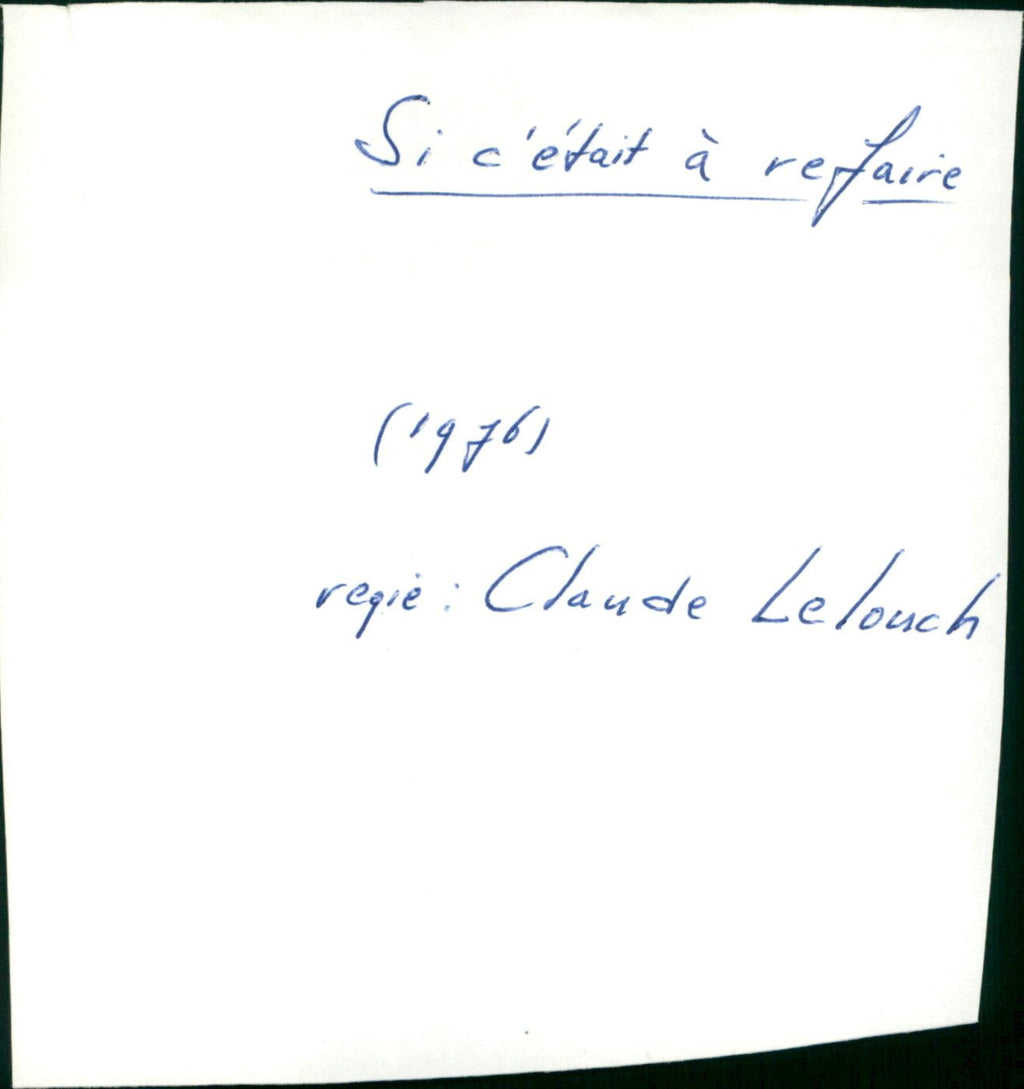 Si c'était à refaire
(1976)
regie: Claude Lelouch